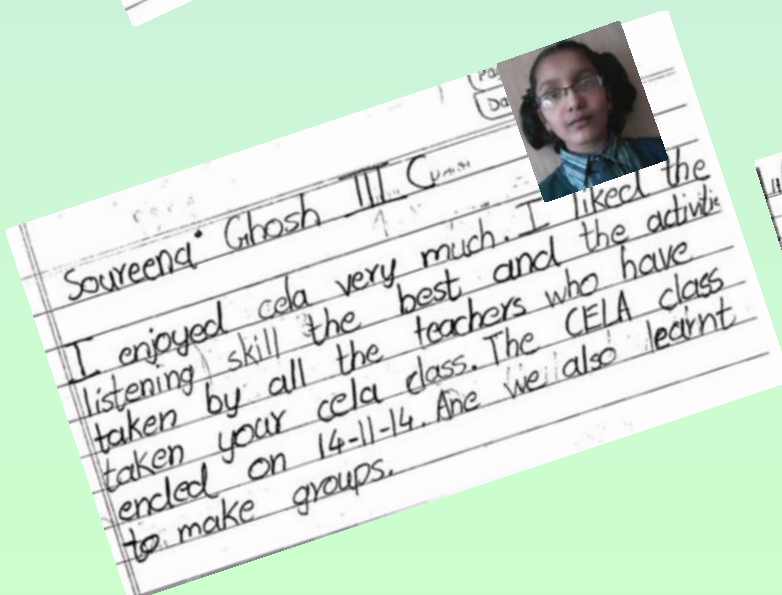 Pa
Da
Soureena Ghosh III C
I enjoyed cela very much. I liked the
listening skill the best and the activitie
taken by all the teachers who have
taken your cela class. The CELA class
ended on 14-11-14. Ane we also learnt
to make groups.